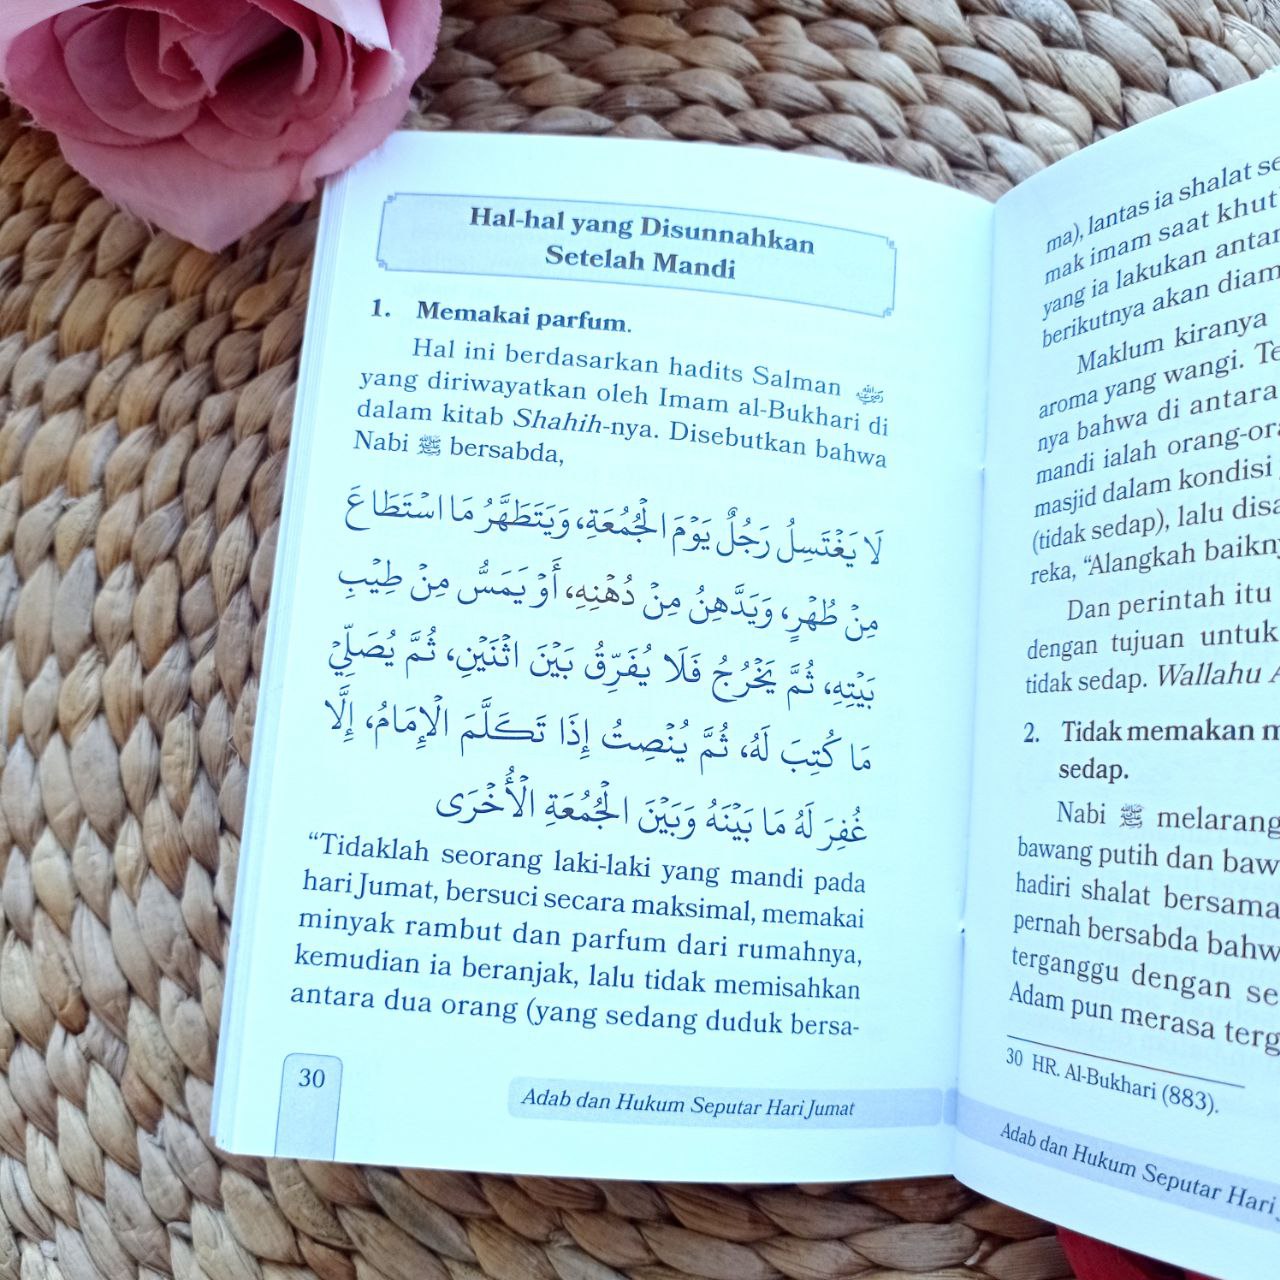 Hal-hal yang Disunnahkan
Setelah Mandi
1. Memakai parfum.
Hal ini berdasarkan hadits Salman رضي الله عنه
yang diriwayatkan oleh Imam al-Bukhari di
dalam kitab Shahih-nya. Disebutkan bahwa
Nabi ﷺ bersabda,
لَا يَغْتَسِلُ رَجُلٌ يَوْمَ الْجُمُعَةِ، وَيَتَطَهَّرُ مَا اسْتَطَاعَ
مِنْ طُهْرٍ، وَيَدَّهِنُ مِنْ دُهْنِهِ، أَوْ يَمَسُّ مِنْ طِيْبِ
بَيْتِهِ، ثُمَّ يَخْرُجُ فَلَا يُفَرِّقُ بَيْنَ اثْنَيْنِ، ثُمَّ يُصَلِّيْ
مَا كُتِبَ لَهُ، ثُمَّ يُنْصِتُ إِذَا تَكَلَّمَ الْإِمَامُ، إِلَّا
غُفِرَ لَهُ مَا بَيْنَهُ وَبَيْنَ الْجُمُعَةِ الْأُخْرَى
“Tidaklah seorang laki-laki yang mandi pada
hari Jumat, bersuci secara maksimal, memakai
minyak rambut dan parfum dari rumahnya,
kemudian ia beranjak, lalu tidak memisahkan
antara dua orang (yang sedang duduk bersa-
30
Adab dan Hukum Seputar Hari Jumat
ma), lantas ia shalat se
mak imam saat khut
yang ia lakukan antar
berikutnya akan diam
Maklum kiranya
aroma yang wangi. Te
nya bahwa di antara
mandi ialah orang-ora
masjid dalam kondisi
(tidak sedap), lalu disa
reka, “Alangkah baikny
Dan perintah itu
dengan tujuan untuk
tidak sedap. Wallahu A
2. Tidak memakan m
sedap.
Nabi ﷺ melarang
bawang putih dan baw
hadiri shalat bersama
pernah bersabda bahw
terganggu dengan se
Adam pun merasa terg
30 HR. Al-Bukhari (883).
Adab dan Hukum Seputar Hari J